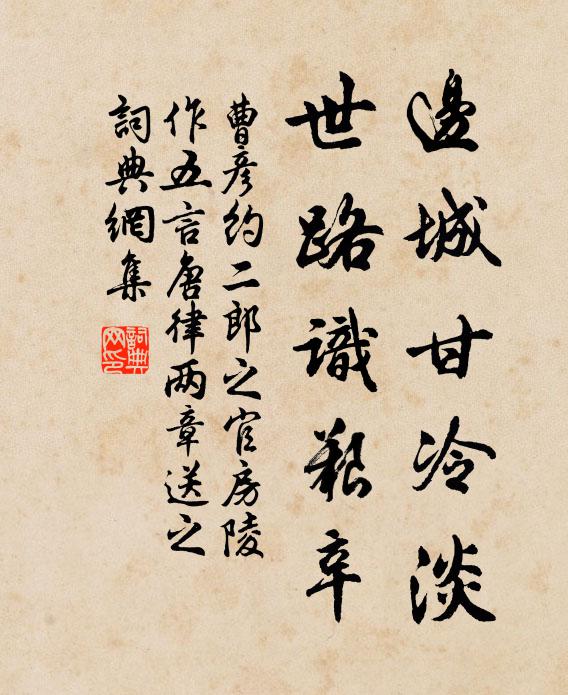 邊城甘冷淡
世路識艱辛
曹彦約二郎之官房陵
作五言唐律两章送之
詞典網集
詞典网印